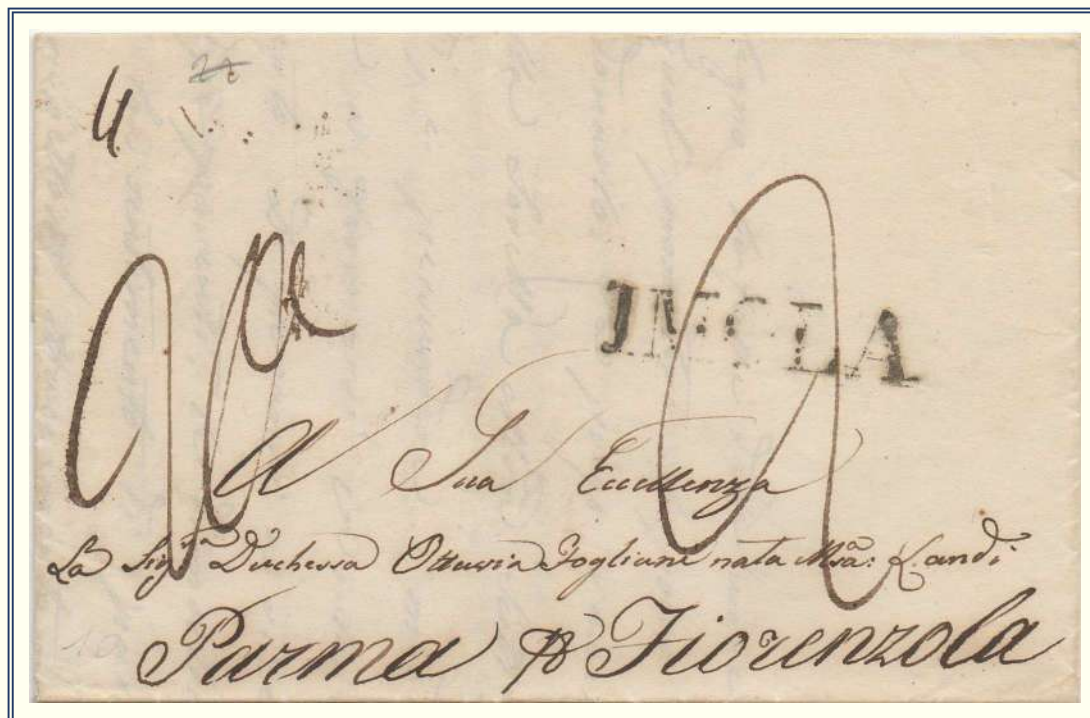 4
IMOLA
A Sua Eccellenza
La Sig.ra Duchessa Ottavia Fogliani nata Msa: Landi
Parma p Fiorenzola